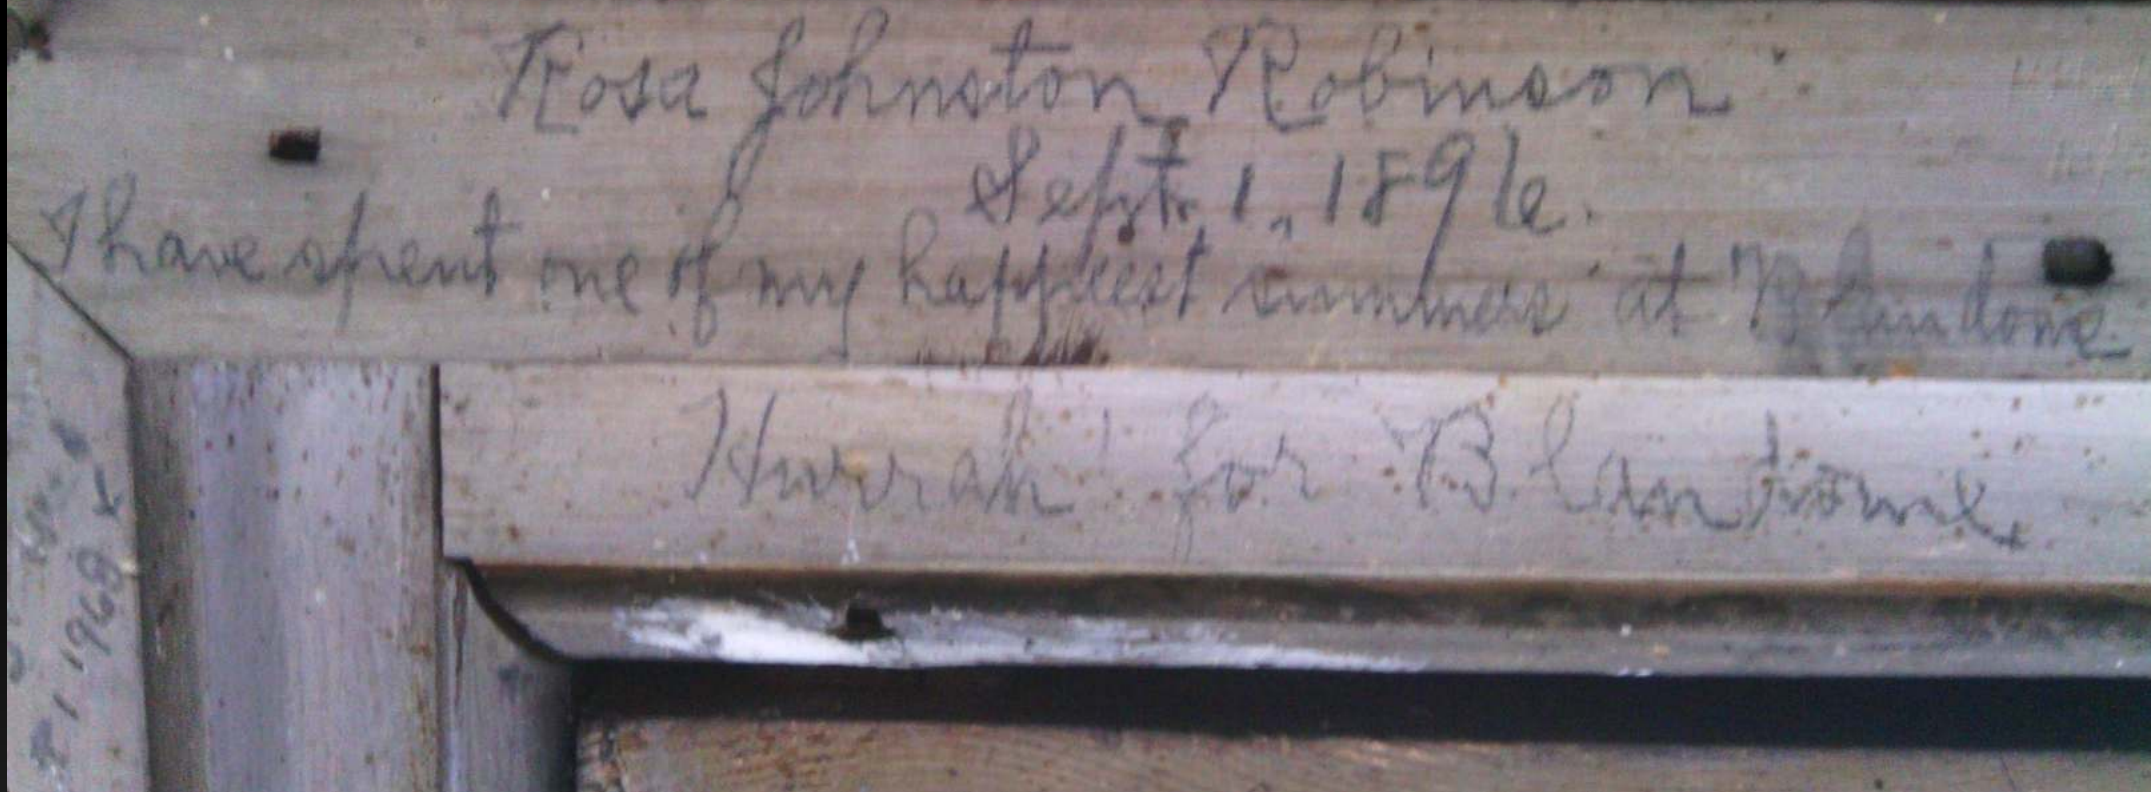 Rosa Johnston Robinson
Sept. 1, 1896.
I have spent one of my happiest summers at Blandome
Hurrah! for Blandome
1968